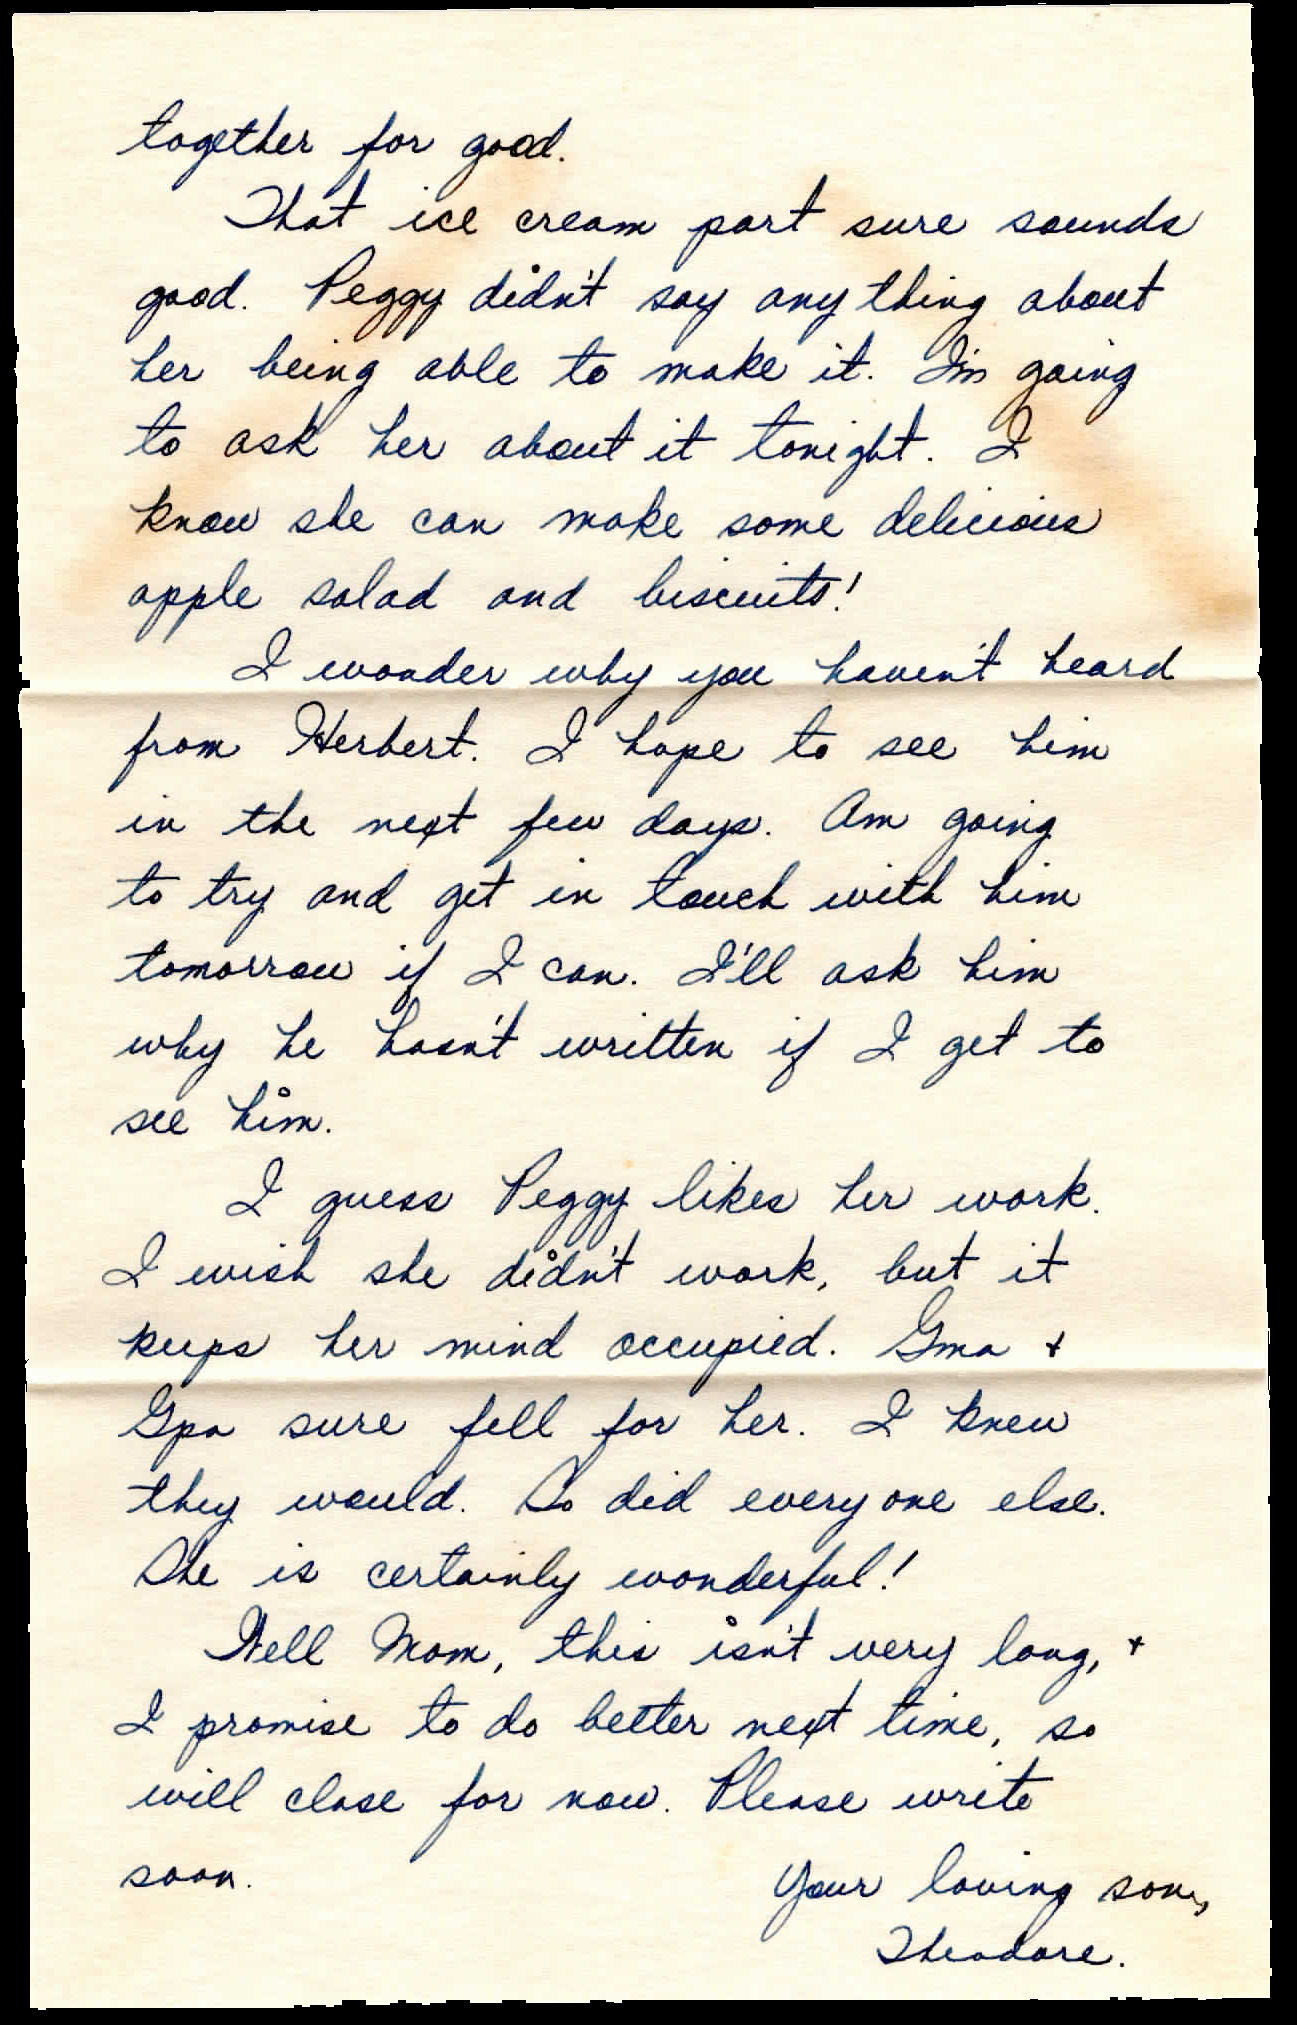 together for good.
That ice cream part sure sounds
good. Peggy didn't say any thing about
her being able to make it. I'm going
to ask her about it tonight. I
know she can make some delicious
apple salad and biscuits!
I wonder why you haven't heard
from Herbert. I hope to see him
in the next few days. Am going
to try and get in touch with him
tomorrow if I can. I'll ask him
why he hasn't written if I get to
see him.
I guess Peggy likes her work.
I wish she didn't work, but it
keeps her mind occupied. Gma +
Gpa sure fell for her. I knew
they would. So did every one else.
She is certainly wonderful!
Well Mom, this isn't very long, +
I promise to do better next time, so
will close for now. Please write
soon.
Your loving son,
Theodore.